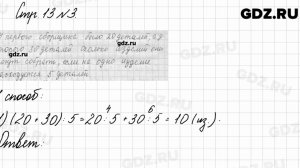 Стр. 13 № 3
GDZ.RU
У первого сборщика было 20 деталей, а у
второго 30 деталей. Сколько изделий они
могут собрать, если на одно изделие
расходуется 5 деталей.
способ:
1) (20 + 30) : 5 = 20 : 5 + 30 : 5 = 10 (из.)
4 6
Ответ:
GDZ.RU
GDZ.RU